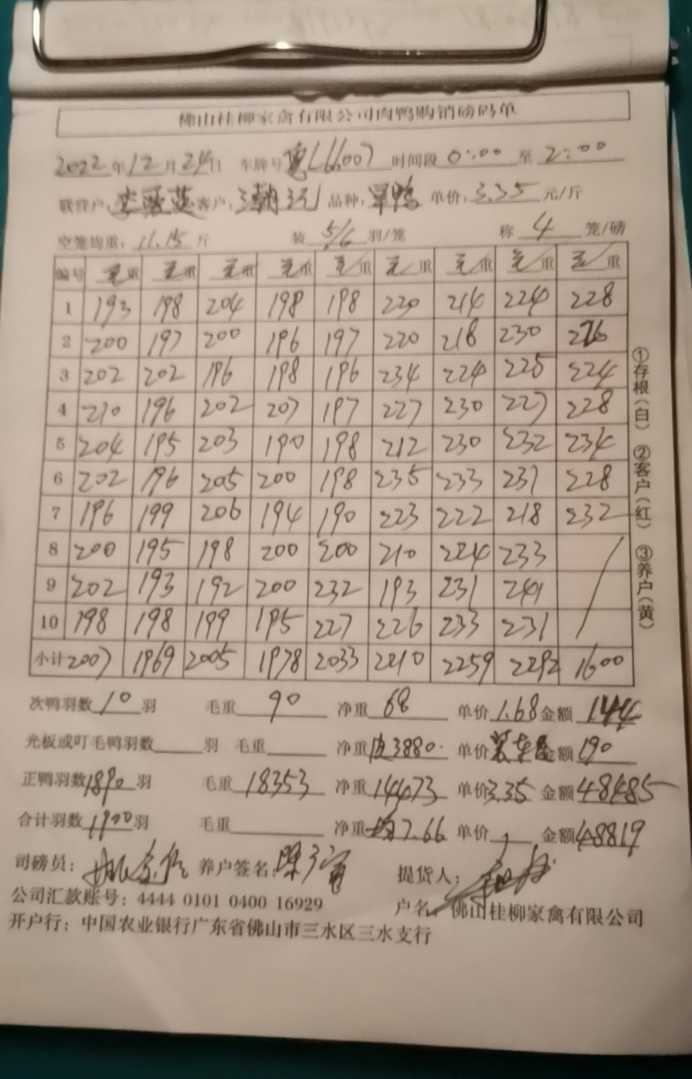 佛山桂柳家禽有限公司肉鸭购销磅码单
2022年12月24日 车牌号 L1600 时间段 0:00 至 2:00
联营户: 客户: 品种: 鸭 单价: 3.35 元/斤
空笼均重: 11.15 斤 装 5/6 羽/笼 称 4 笼/磅
编号 毛重 毛重 毛重 毛重 毛重 毛重 毛重 毛重 毛重
1 193 198 204 198 198 220 214 224 228
2 200 197 200 196 197 220 218 230 226
3 202 202 196 198 196 234 224 225 224
4 210 196 202 207 197 227 230 227 228
5 204 195 203 190 198 212 230 232 234
6 202 196 205 200 198 235 233 231 228
7 196 199 206 194 190 223 222 218 232
8 200 195 198 200 200 210 224 233
9 202 193 192 200 232 193 231 241
10 198 198 199 195 227 226 233 231
小计 2007 1969 2005 1978 2033 2210 2259 2292 1600
次鸭羽数 10 羽 毛重 90 净重 68 单价 1.68 金额 144
光板或叮毛鸭羽数 羽 毛重 净重 3880 单价 装车 金额 190
正鸭羽数 1890 羽 毛重 18353 净重 14473 单价 3.35 金额 48485
合计羽数 1900 羽 毛重 净重 均7.66 单价 金额 48819
司磅员: 养户签名: 提货人:
公司汇款账号: 4444 0101 0400 16929 户名: 佛山桂柳家禽有限公司
开户行: 中国农业银行广东省佛山市三水区三水支行
①存根(白) ②客户(红) ③养户(黄)